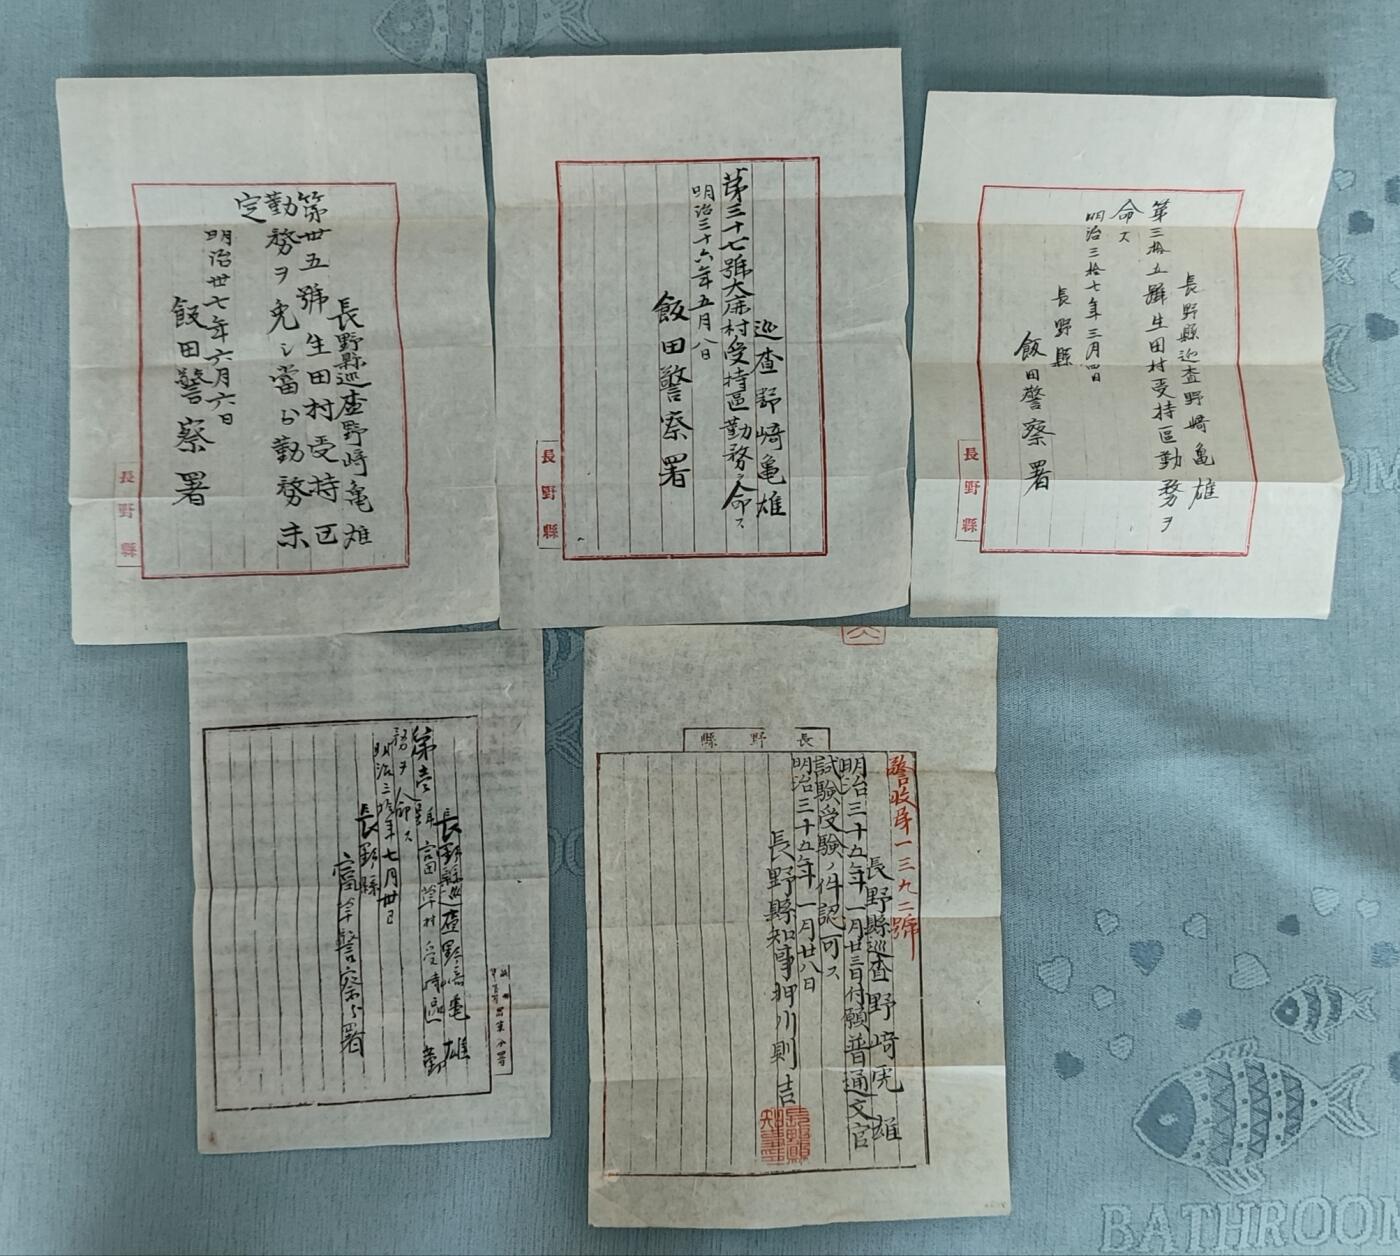 長野縣巡査野﨑亀雄
第卅五號生田村受持區
勤務ヲ免シ當分勤務未
定
明治卅七年六月六日
飯田警察署
長野縣
巡査野﨑亀雄
第三十七號大鹿村受持區勤務ヲ命ス
明治三十六年五月八日
飯田警察署
長野縣
長野縣巡査野﨑亀雄
第三拾五號生田村受持區勤務ヲ
命ス
明治三拾七年三月四日
長野縣
飯田警察署
長野縣
長野縣巡査野﨑亀雄
第壱號富草村受持區勤
務ヲ命ス
明治三拾年七月卅日
長野縣
富草警察分署
長野縣
警收第一三九二號
長野縣巡査野﨑亀雄
明治三十五年一月廿三日付願普通文官
試驗受驗ノ件認可ス
明治三十五年一月廿八日
長野縣知事押川則吉